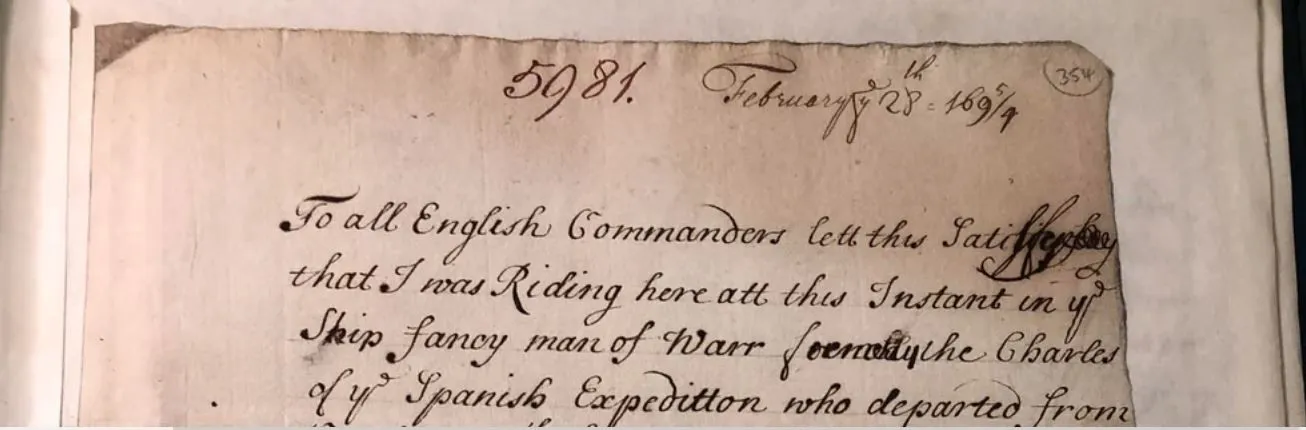 354
5981. February yᵉ 28th = 169⁵/₄
To all English Commanders lett this Satisfye
that I was Riding here att this Instant in yᵉ
Ship fancy man of Warr formerly the Charles
of yᵉ Spanish Expeditton who departed from